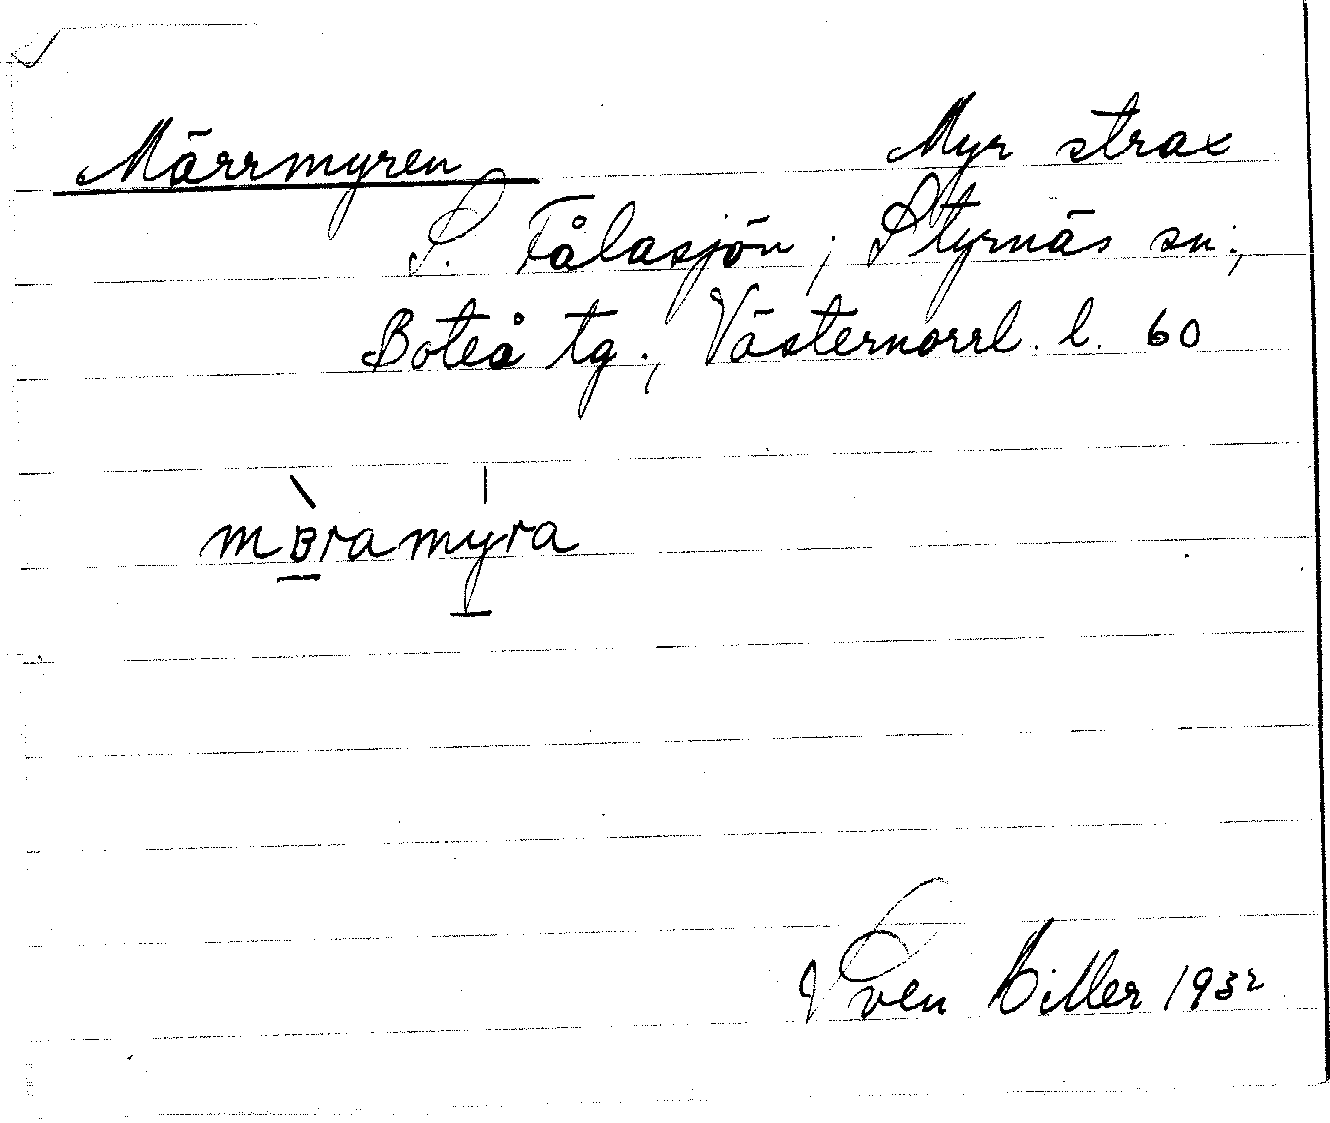 Märrmyren Myr strax
S. Fålasjön, Styrnäs sn.,
Boteå tg., Västernorrl. l. 60
mɞ̀ramýra
Sven Hiller 1932